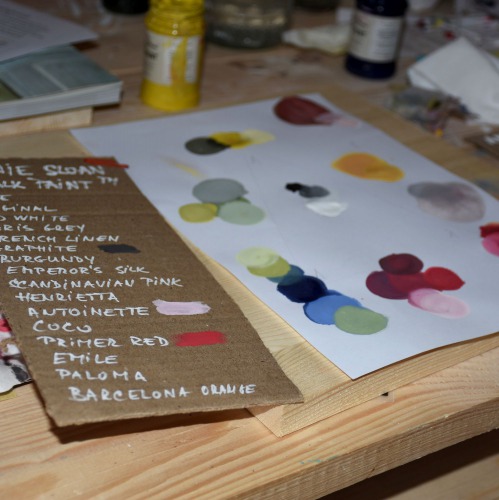 NIE SLOAN
LK PAINT™
GINAL
D WHITE
RIS GREY
FRENCH LINEN
GRAPHITE
BURGUNDY
EMPEROR'S SILK
SCANDINAVIAN PINK
HENRIETTA
ANTOINETTE
COCO
PRIMER RED
EMILE
PALOMA
BARCELONA ORANGE